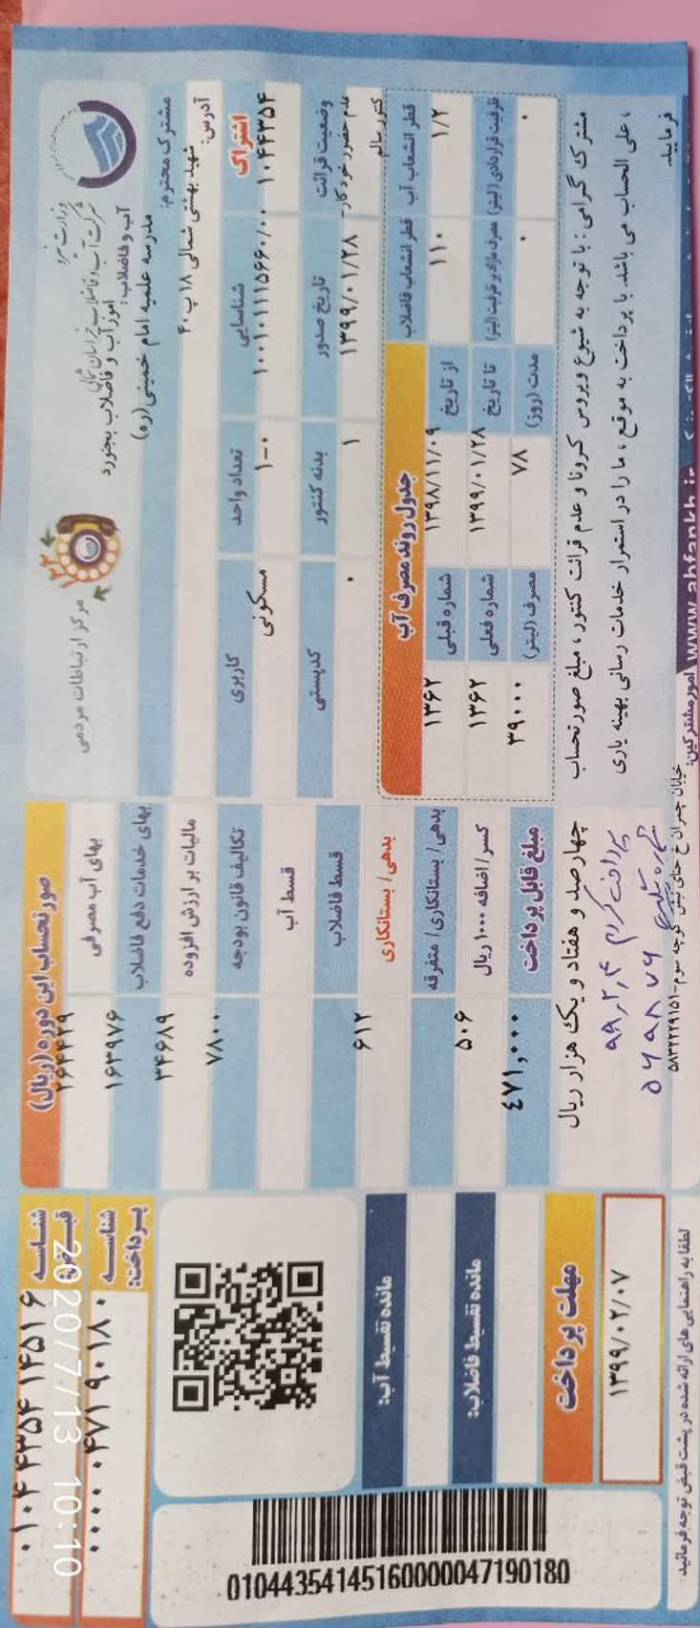 وزارت نیرو
شرکت آب و فاضلاب خراسان شمالی
آب و فاضلاب:
امور آب و فاضلاب بجنورد
مرکز ارتباطات مردمی
مشترک محترم:
مدرسه علمیه امام خمینی (ره)
آدرس:
شهید بهشتی شمالی ۱۸ پ ۴۰
اشتراک
شناسایی
تعداد واحد
کاربری
۱۰۴۴۳۵۴
۱۰۰۱۰۱۱۱۵۶۶۰/۰۰
۱-۰
مسکونی
وضعیت قرائت
تاریخ صدور
بدنه کنتور
کدپستی
عدم حضور خودکار-
کنتور سالم
۱۳۹۹/۰۱/۲۸
۱
۰
قطر انشعاب آب
قطر انشعاب فاضلاب
جدول روند مصرف آب
۱/۲
۱۱۰
از تاریخ
۱۳۹۸/۱۱/۰۹
شماره قبلی
۱۳۶۲
ظرفیت قراردادی (لیتر)
مصرف مازاد بر ظرفیت (لیتر)
تا تاریخ
۱۳۹۹/۰۱/۲۸
شماره فعلی
۱۳۶۲
۰
۰
مدت (روز)
۷۸
مصرف (لیتر)
۳۹۰۰۰
مشترک گرامی: با توجه به شیوع ویروس کرونا و عدم قرائت کنتور، مبلغ صورتحساب
، علی الحساب می باشد. با پرداخت به موقع، ما را در استمرار خدمات رسانی بهینه یاری
فرمایید.
www.abfankh.ir
امور مشترکین:
صورتحساب این دوره (ریال)
بهای آب مصرفی
۲۶۴۴۲۹
بهای خدمات دفع فاضلاب
۱۶۳۹۷۶
مالیات بر ارزش افزوده
۳۴۶۸۹
تکالیف قانون بودجه
۷۸۰۰
قسط آب
قسط فاضلاب
بدهی / بستانکاری
۶۱۲
بدهی / بستانکاری / متفرقه
کسر / اضافه ۱۰۰۰ ریال
۵۰۶
مبلغ قابل پرداخت
۴۷۱,۰۰۰
چهارصد و هفتاد و یک هزار ریال
پرداخت کردم ۹۹,۲,۴
۵۶۹۸۷۶
کوچه سوم-۵۸۳۲۲۲۹۱۵۱
شناسه
قبض:
۰۱۰۴۴۳۵۴۱۴۵۱۶
شناسه
پرداخت:
۰۰۰۰۰۴۷۱۹۰۱۸۰
2020/7/13 10:10
مانده تقسیط آب:
مانده تقسیط فاضلاب:
مهلت پرداخت
۱۳۹۹/۰۲/۰۷
01044354145160000047190180
لطفا به راهنمایی های ارائه شده در پشت قبض توجه فرمائید